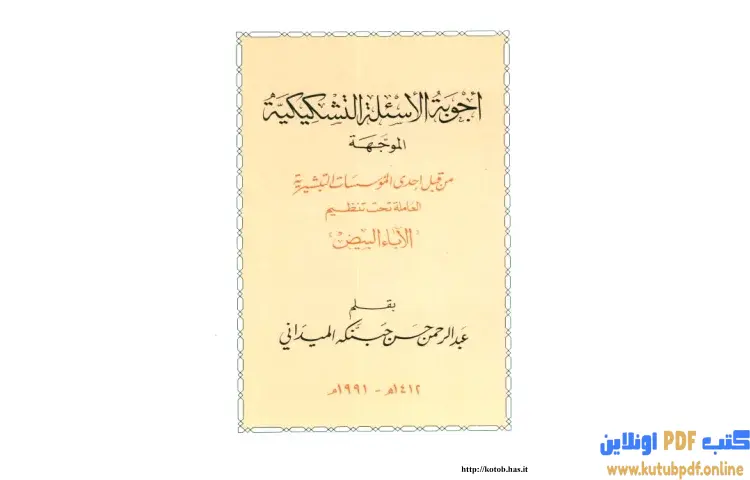 أجوبة الأسئلة التشكيكية
الموجهة
من قبل إحدى المؤسسات التبشيرية
العاملة تحت تنظيم
"الآباء البيض"
بقلم
عبد الرحمن حسن حبنكه الميداني
١٤١٢هـ - ١٩٩١م
كتب PDF اونلاين
www.kutubpdf.online
http://kotob.has.it